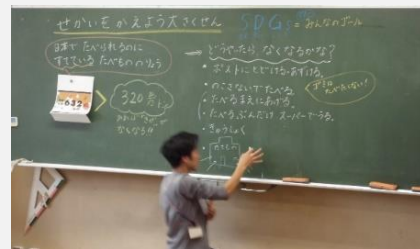 せかいをかえよう大さくせん
SDGs=みんなのゴール
日本で たべられるのに
すてている たべもののりょう
632
320番
なくなる!!
どうやったら なくなるかな?
・ポストにとどける・あずける。
・のこさないですたべる。
・たべるまえにあげる。
・たべるぶんだけ スーパーでうる。
・きゅうしょく